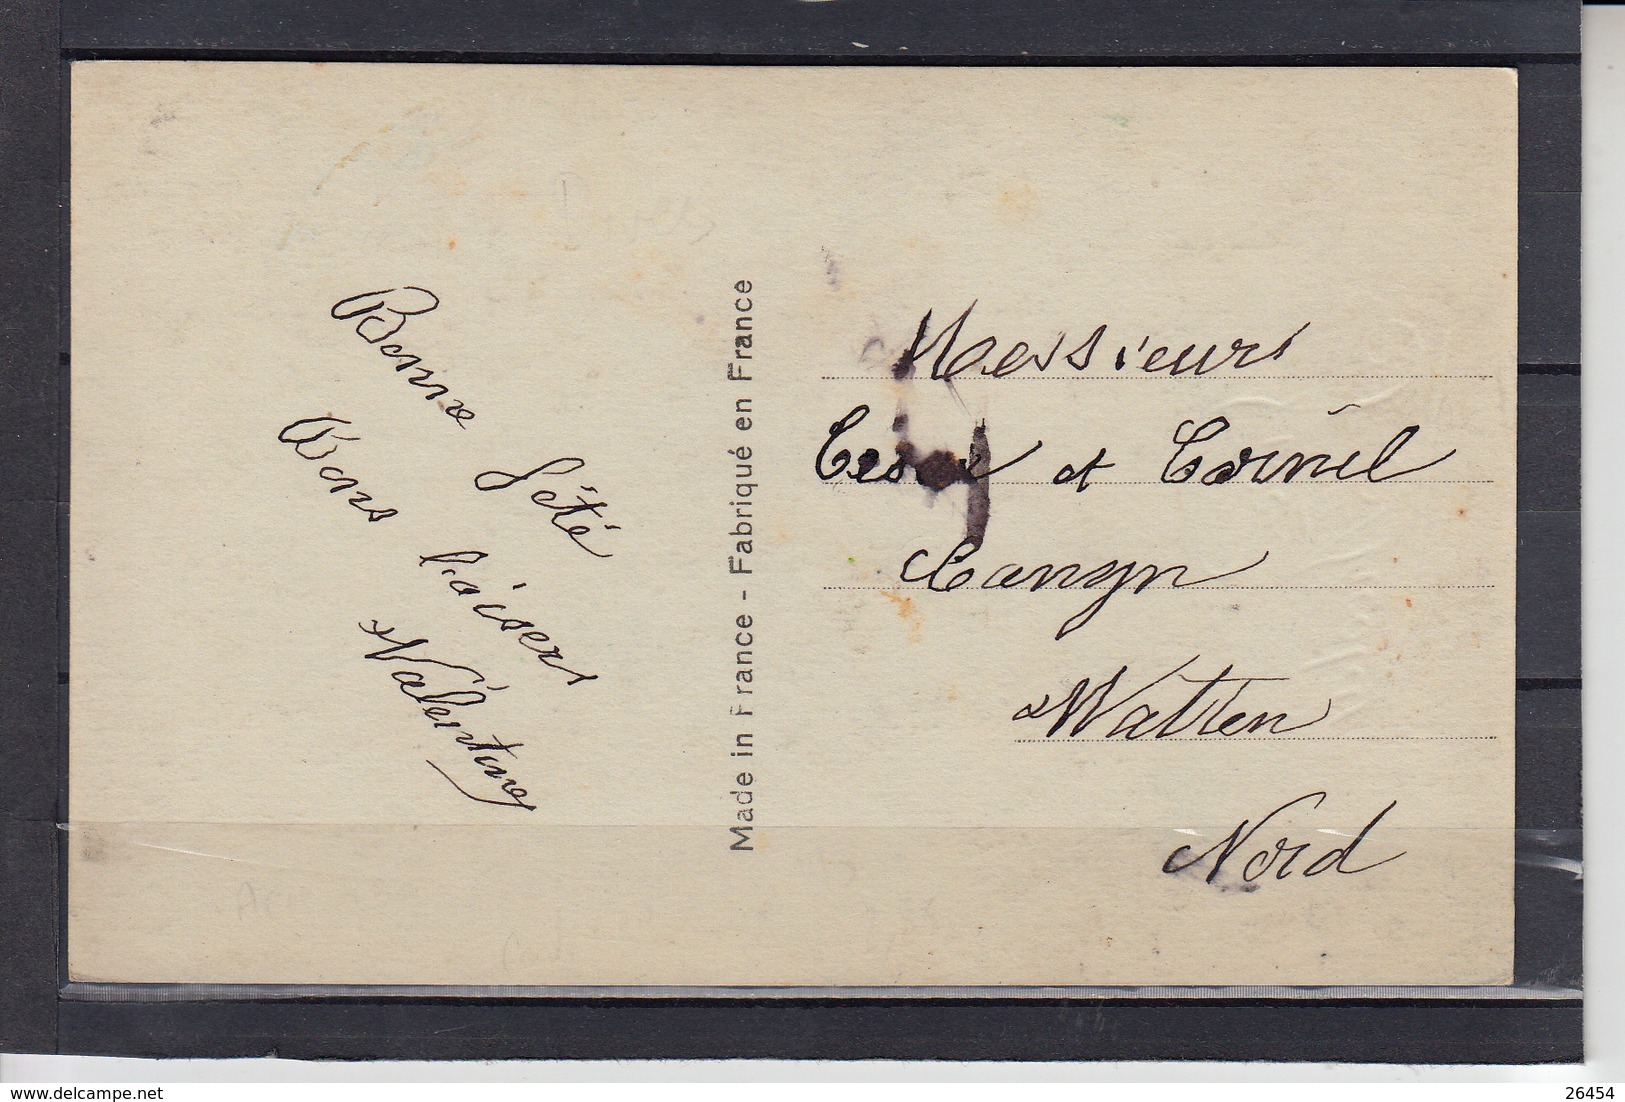 Bonne fêté
Bons baisers
Valentine
Made in France - Fabriqué en France
Messieurs
et Cornil
Watten
Nord
www.delcampe.net
26454